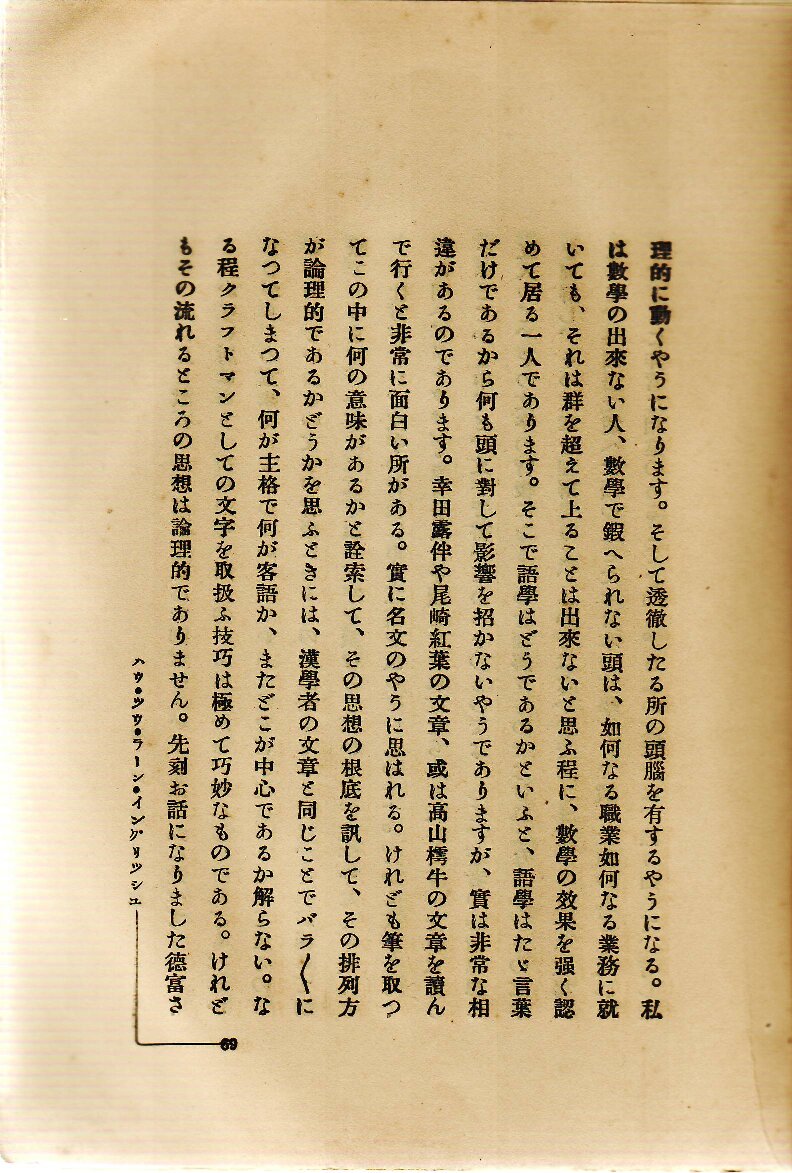 理的に動くやうになります。そして透徹したる所の頭腦を有するやうになる。私
は數學の出來ない人、數學で鍜へられない頭は、如何なる職業如何なる業務に就
いても、それは群を超えて上ることは出來ないと思ふ程に、數學の效果を强く認
めて居る一人であります。そこで語學はどうであるかといふと、語學はたゞ言葉
だけであるから何も頭に對して影響を招かないやうでありますが、實は非常な相
違があるのであります。幸田露伴や尾崎紅葉の文章、或は高山樗牛の文章を讀ん
で行くと非常に面白い所がある。實に名文のやうに思はれる。けれども筆を取つ
てこの中に何の意味があるかと詮索して、その思想の根底を訊して、その排列方
が論理的であるかどうかを思ふときには、漢學者の文章と同じことでバラ〱に
なつてしまつて、何が主格で何が客語か、またどこが中心であるか解らない。な
る程クラフトマンとしての文字を取扱ふ技巧は極めて巧妙なものである。けれど
もその流れるところの思想は論理的でありません。先刻お話になりました德富さ
ハウ・ツウ・ラーン・イングリツシユ
69